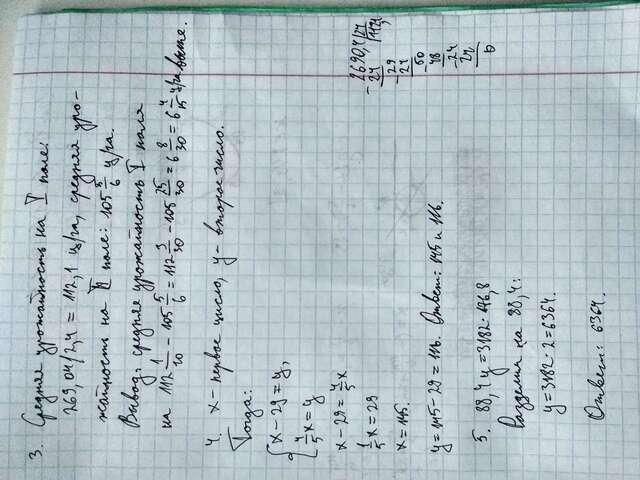 3. Средняя урожайность на I поле:
269,04/2,4 = 112,1 ц/га, средняя уро-
жайность на II поле: 105 5/6 ц/га.
Вывод: средняя урожайность I поля
на 112 1/10 - 105 5/6 = 112 3/30 - 105 25/30 = 6 8/30 = 6 4/15 ц/га выше.
2690,4 | 24
24 | 112,1
29
24
50
48
24
24
0
4. x - первое число, y - второе число.
Тогда:
{ x - 29 = y,
4/5 x = y
x - 29 = 4/5 x
1/5 x = 29
x = 145.
y = 145 - 29 = 116. Ответ: 145 и 116.
5. 88,4 y = 3182 · 176,8
Разделим на 88,4:
y = 3182 · 2 = 6364.
Ответ: 6364.